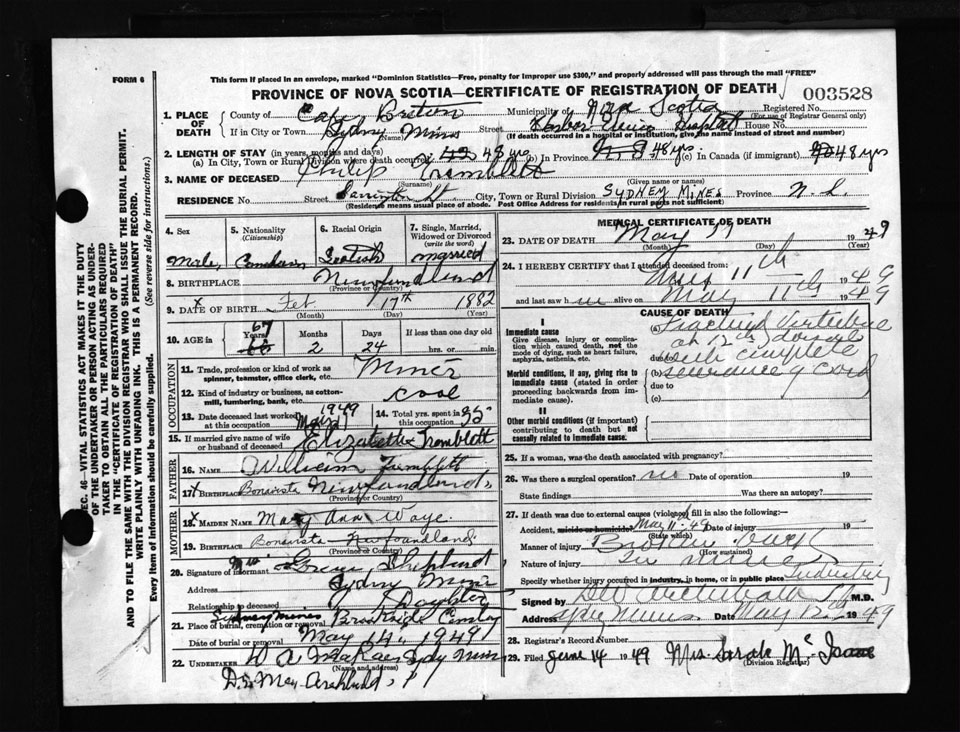 FORM 6
This form if placed in an envelope, marked "Dominion Statistics—Free, penalty for improper use $300," and properly addressed will pass through the mail "FREE"
PROVINCE OF NOVA SCOTIA—CERTIFICATE OF REGISTRATION OF DEATH
003528
1. PLACE OF DEATH
County of Cape Breton Municipality of Nova Scotia Registered No.
(For use of Registrar General only)
If in City or Town Sydney Mines Street Harbor View Hospital House No.
(If death occurred in a hospital or institution, give the name instead of street and number)
2. LENGTH OF STAY (in years, months and days)
(a) In City, Town or Rural Division where death occurred 48 yrs (b) In Province 48 yrs. (c) In Canada (if immigrant) 48 yrs
3. NAME OF DECEASED Philip Tremblett
(Surname) (Given name or names)
RESIDENCE No. Street City, Town or Rural Division SYDNEY MINES Province N.S.
(Residence means usual place of abode. Post Office Address for residents in rural parts not sufficient)
4. Sex Male
5. Nationality (Citizenship) Canadian
6. Racial Origin Scotish
7. Single, Married, Widowed or Divorced (write the word) married
8. BIRTHPLACE Newfoundland
(Province or Country)
9. DATE OF BIRTH Feb 17th 1882
(Month) (Day) (Year)
10. AGE in Years 67 Months 2 Days 24 If less than one day old
hrs. or min.
OCCUPATION
11. Trade, profession or kind of work as spinner, teamster, office clerk, etc. Miner
12. Kind of industry or business, as cotton-mill, lumbering, bank, etc. coal
13. Date deceased last worked at this occupation 1949
14. Total yrs. spent in 35
15. If married give name of wife or husband of deceased Elizabeth Tremblett
FATHER
16. NAME William Tremblett
17. BIRTHPLACE Bonavista Newfoundland
(Province or Country)
MOTHER
18. MAIDEN NAME Mary Ann Waye
19. BIRTHPLACE Bonavista Newfoundland
(Province or Country)
20. Signature of informant Mrs Shepherd
Address Sydney Mines
Relationship to deceased Daughter
21. Place of burial, cremation or removal Sydney Mines Brookside Cemetery
Date of burial or removal May 14, 1949
22. UNDERTAKER Sydney Mines
(Name and address)
MEDICAL CERTIFICATE OF DEATH
23. DATE OF DEATH May 11 1949
(Month) (Day) (Year)
24. I HEREBY CERTIFY that I attended deceased from:
May 11th 1949
and last saw h im alive on May 11th 1949
CAUSE OF DEATH
I
Immediate cause
Give disease, injury or complication which caused death, not the mode of dying, such as heart failure, asphyxia, asthenia, etc.
(a) Fractured Vertebrae at 12th dorsal
due to with complete
Morbid conditions, if any, giving rise to immediate cause (stated in order proceeding backwards from immediate cause).
(b) severance of cord
due to
(c)
II
Other morbid conditions (if important) contributing to death but not causally related to immediate cause.
25. If a woman, was the death associated with pregnancy?
26. Was there a surgical operation? no Date of operation 19
State findings Was there an autopsy?
27. If death due to external causes (violence) fill in also the following:
Accident, suicide or homicide? May 11-49 Date of injury 19
(State which)
Manner of injury Broken back
(How sustained)
Nature of injury In mines
Specify whether injury occurred in industry, in home, or in public place Industry
Signed by M.D.
Address Syd Mines Date May 12 1949
28. Registrar's Record Number
29. Filed June 14 1949 Mrs. Sarah Mc Isaac
(Division Registrar)
SEC. 46—VITAL STATISTICS ACT MAKES IT THE DUTY OF THE UNDERTAKER OR PERSON ACTING AS UNDERTAKER TO OBTAIN ALL THE PARTICULARS REQUIRED IN THE "CERTIFICATE OF REGISTRATION OF DEATH" AND TO FILE THE SAME WITH THE DIVISION REGISTRAR WHO SHALL ISSUE THE BURIAL PERMIT.
WRITE PLAINLY WITH UNFADING INK. THIS IS A PERMANENT RECORD.
Every item of information should be carefully supplied. (See reverse side for instructions.)